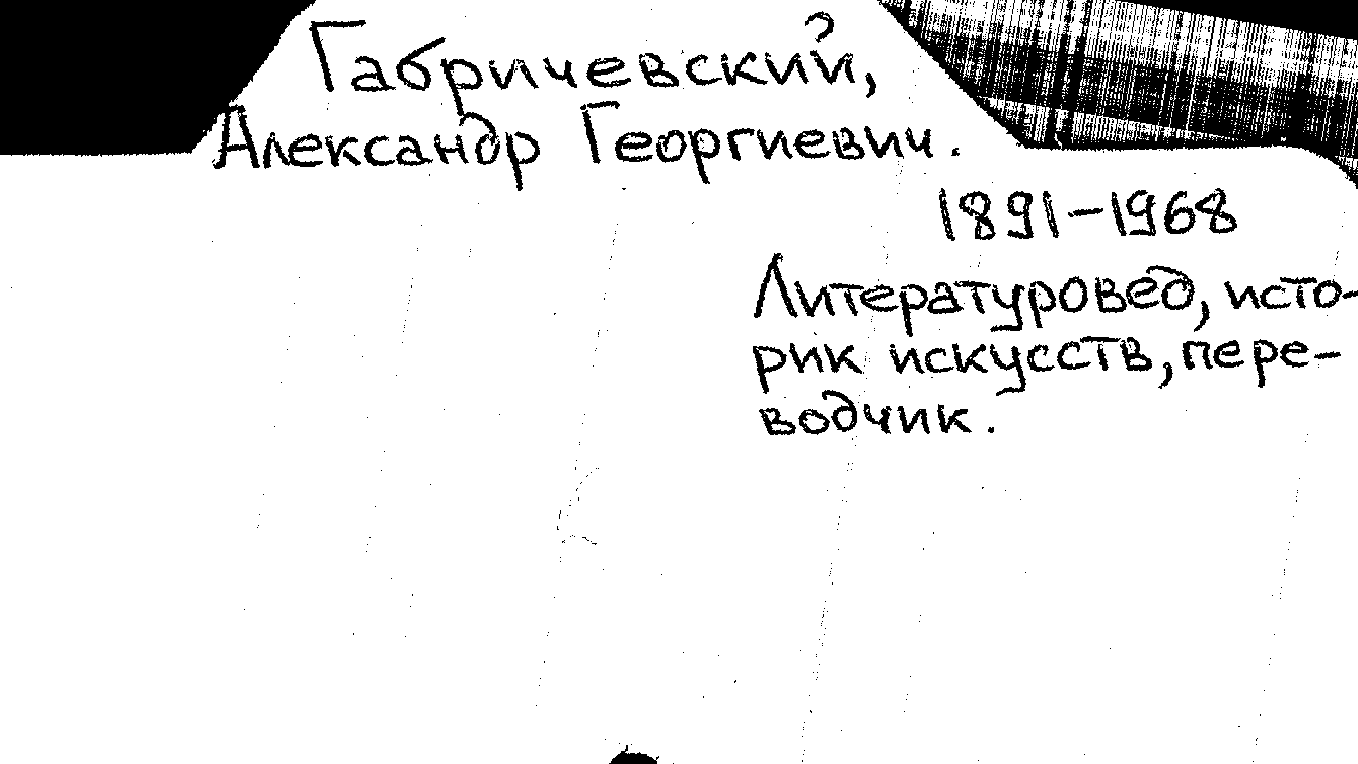 Габричевский,
Александр Георгиевич.
1891-1968
Литературовед, исто-
рик искусств, пере-
водчик.